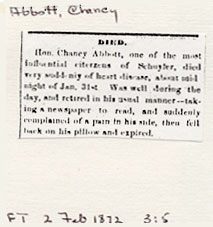 Abbott, Chaney
DIED.
Hon. Chaney Abbott, one of the most
influential citerzens of Schuyler, died
very suddenly of heart disease, about mid
night of Jan. 31st Was well during the
day, and retired in his usual manner—tak-
ing a newspaper to read, and suddenly
complained of a pain in his side, then fell
back on his pillow and expired.
FT 2 Feb 1872 3:5